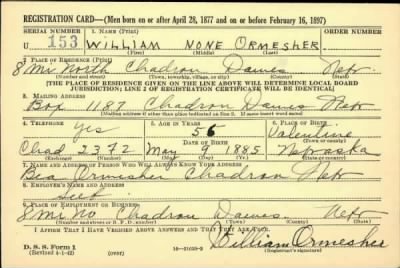 REGISTRATION CARD—(Men born on or after April 28, 1877 and on or before February 16, 1897)
SERIAL NUMBER 1. NAME (Print) ORDER NUMBER
U 153 WILLIAM NONE ORMESHER
2. PLACE OF RESIDENCE (Print)
8 mi North Chadron Dawes Nebr
(Number and street) (Town, township, village, or city) (County) (State)
[THE PLACE OF RESIDENCE GIVEN ON THE LINE ABOVE WILL DETERMINE LOCAL BOARD
JURISDICTION; LINE 2 OF REGISTRATION CERTIFICATE WILL BE IDENTICAL]
3. MAILING ADDRESS
Box 1187 Chadron Dawes Nebr
[Mailing address if other than place indicated on line 2. If same insert word same]
4. TELEPHONE 5. AGE IN YEARS 6. PLACE OF BIRTH
yes 56 Valentine
DATE OF BIRTH (Town or county)
Chad 2372 May 9 1885 Nebraska
(Exchange) (Number) (Mo.) (Day) (Yr.) (State or country)
7. NAME AND ADDRESS OF PERSON WHO WILL ALWAYS KNOW YOUR ADDRESS
Bea Ormesher Chadron Nebr
8. EMPLOYER'S NAME AND ADDRESS
Self
9. PLACE OF EMPLOYMENT OR BUSINESS
8 mi No Chadron Dawes Nebr
(Number and street or R. F. D. number) (Town) (County) (State)
I AFFIRM THAT I HAVE VERIFIED ABOVE ANSWERS AND THAT THEY ARE TRUE.
D. S. S. Form 1 William Ormesher
(Revised 4-1-42) (over) (Registrant's signature)